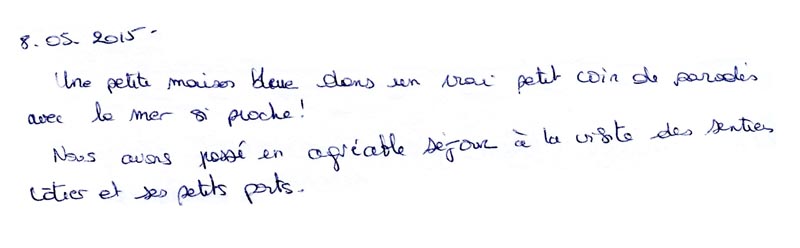 8.05.2015-
Une petite maison bleue dans un vrai petit coin de paradis
avec la mer si proche !
Nous avons passé en agréable séjour à la visite des sentiers
côtier et ses petits ports.